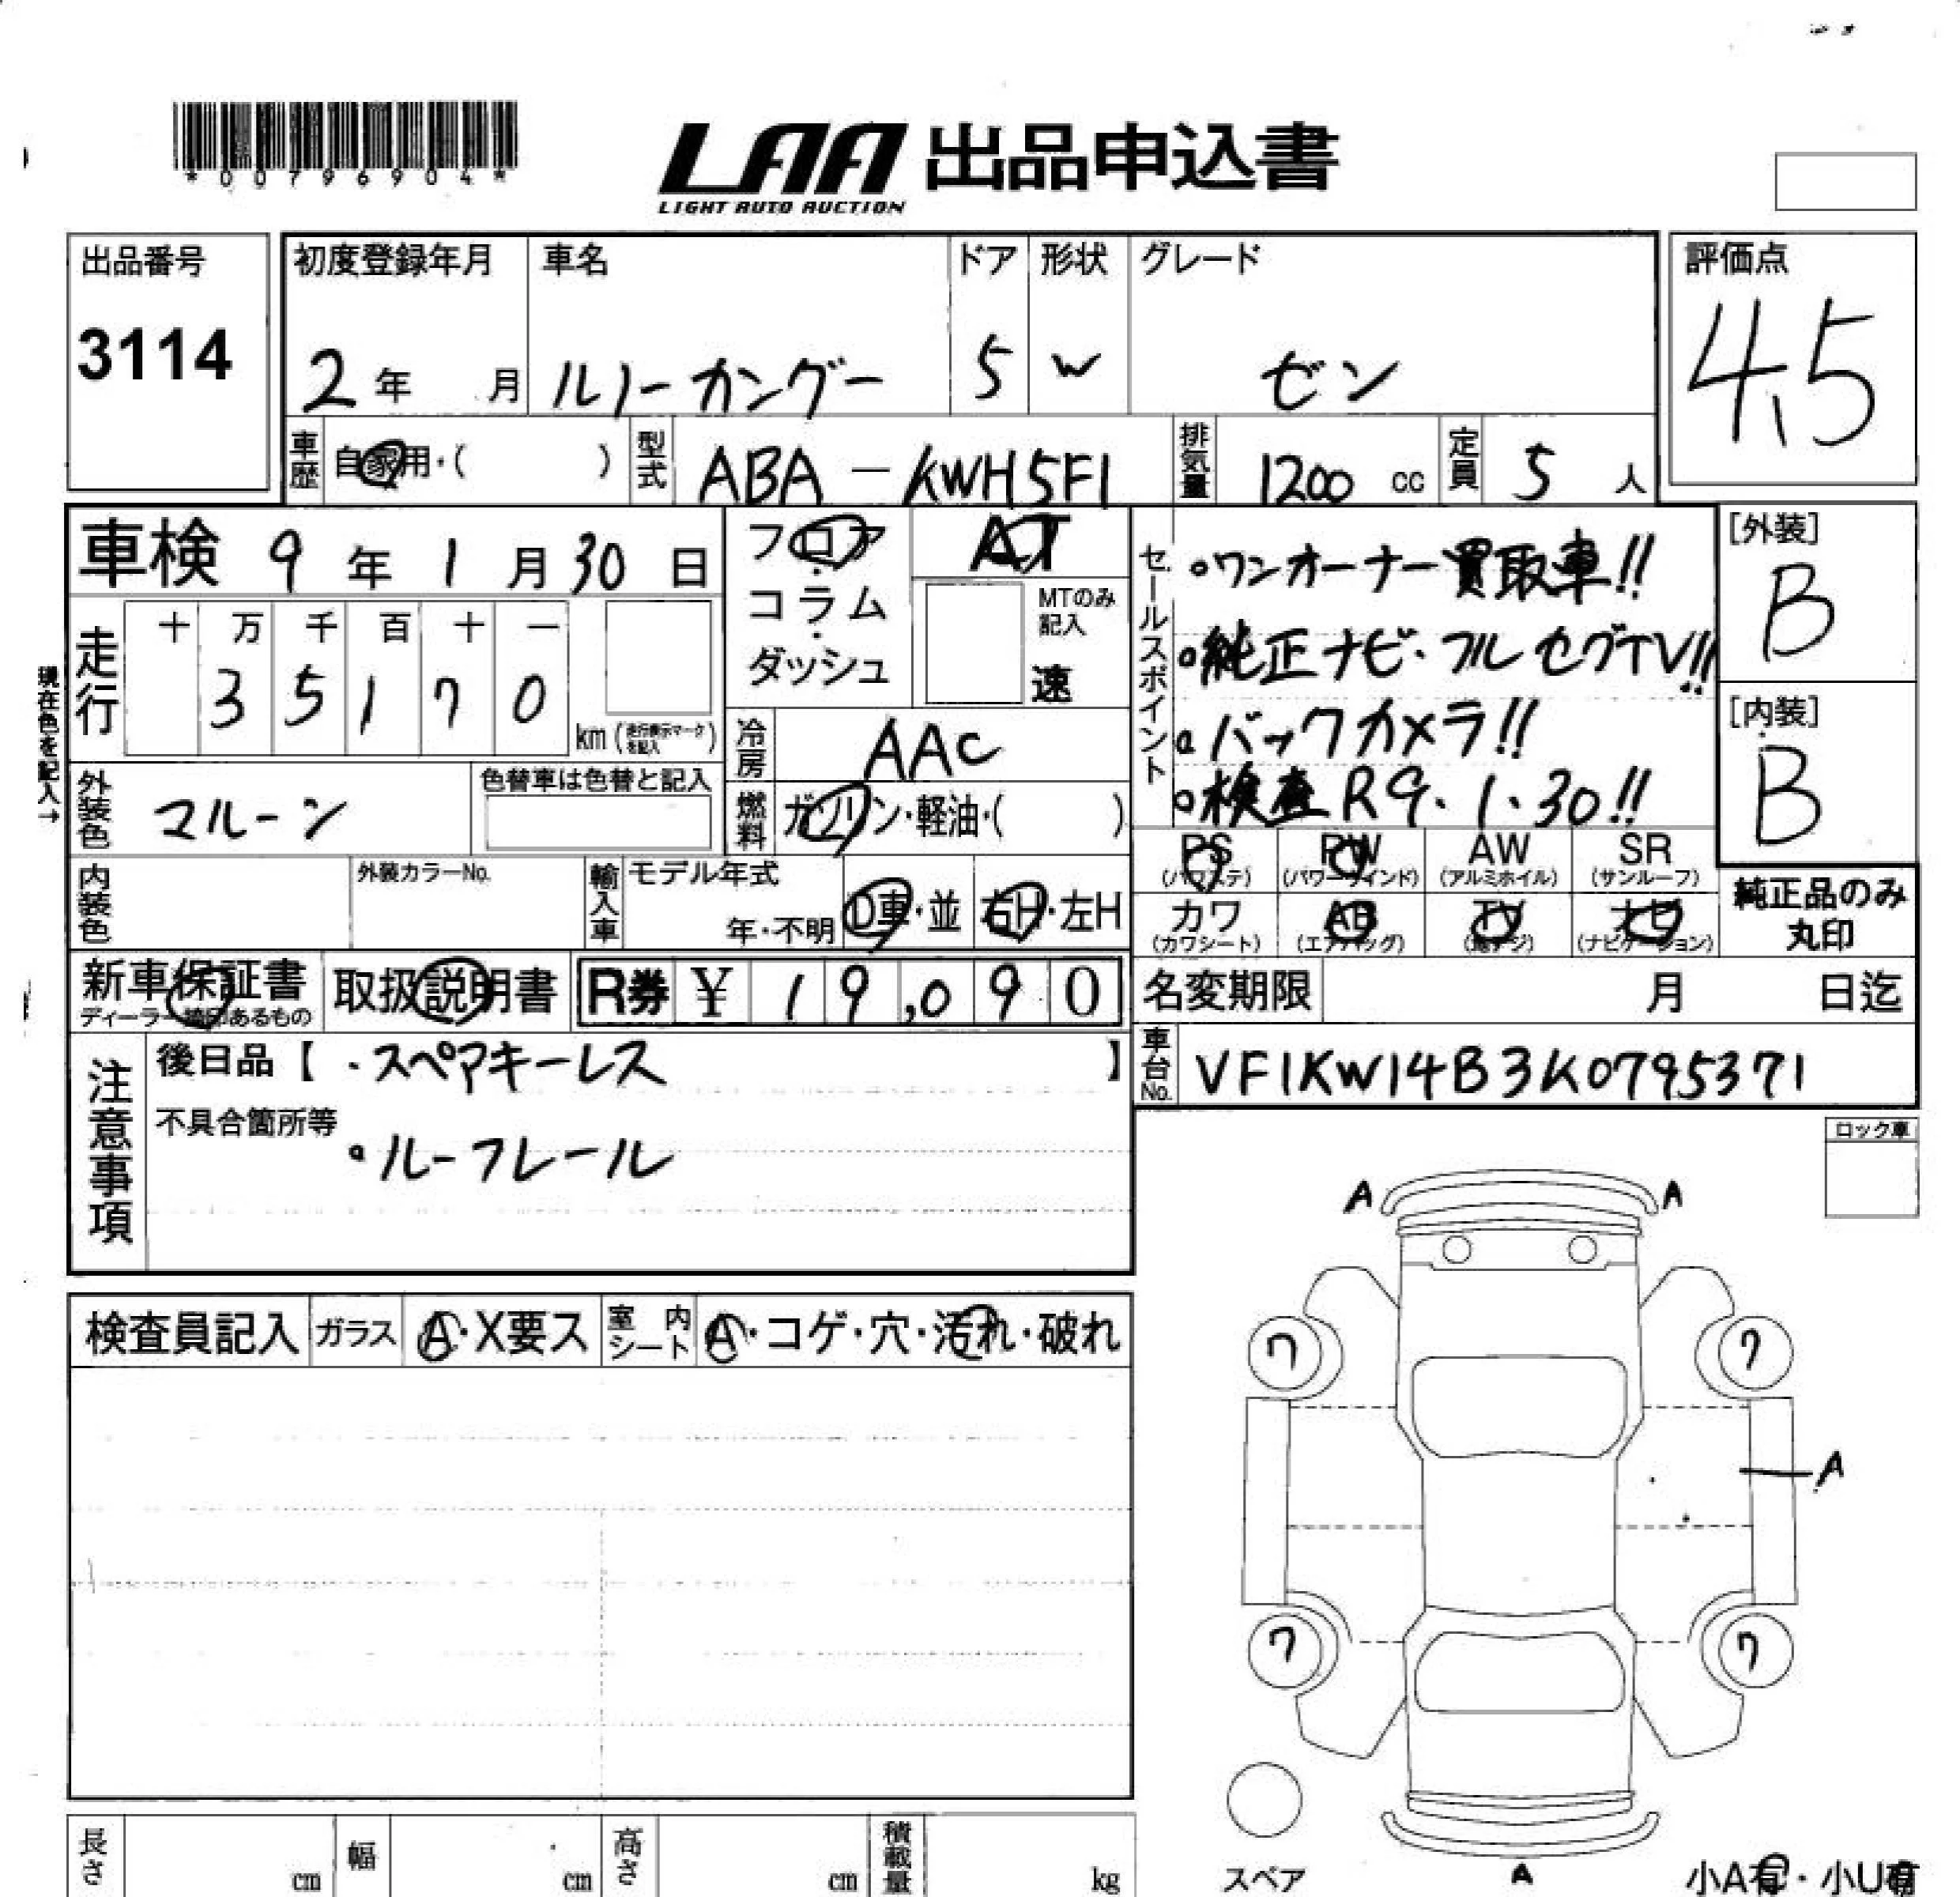 *00796904*
LAA 出品申込書
LIGHT AUTO AUCTION
出品番号
3114
初度登録年月
2年 月
車名
ルノーカングー
ドア
5
形状
W
グレード
ゼン
評価点
4.5
車歴 自家用・( )
型式 ABA-KWH5F1
排気量 1200 cc
定員 5 人
車検 9年 1月 30日
現在色を記入→
走行 十 万 千 百 十 一
3 5 1 7 0
km(走行表示マークを記入)
フロア・コラム・ダッシュ
AT
MTのみ記入
速
冷房 AAC
燃料 ガソリン・軽油・( )
外装色 マルーン
色替車は色替と記入
内装色
外装カラーNo.
輸入車 モデル年式
年・不明
D車・並
右H・左H
セールスポイント
・ワンオーナー買取車!!
・純正ナビ・フルセグTV!!
・バックカメラ!!
・検査R9.1.30!!
[外装]
B
[内装]
B
PS (パワステ)
PW (パワーウィンド)
AW (アルミホイル)
SR (サンルーフ)
カワ (カワシート)
AB (エアバッグ)
TV (地デジ)
ナビ (ナビゲーション)
純正品のみ
丸印
新車保証書
ディーラー捺印あるもの
取扱説明書
R券 ¥ 19,090
名変期限 月 日迄
車台No. VF1KW14B3K0795371
注意事項
後日品【 ・スペアキーレス 】
不具合箇所等
・ルーフレール
ロック車
検査員記入
ガラス A・X要ス
室内シート A・コゲ・穴・汚れ・破れ
A A
7 7
A
7 7
スペア
A
小A有・小U有
長さ cm
幅 cm
高さ cm
積載量 kg